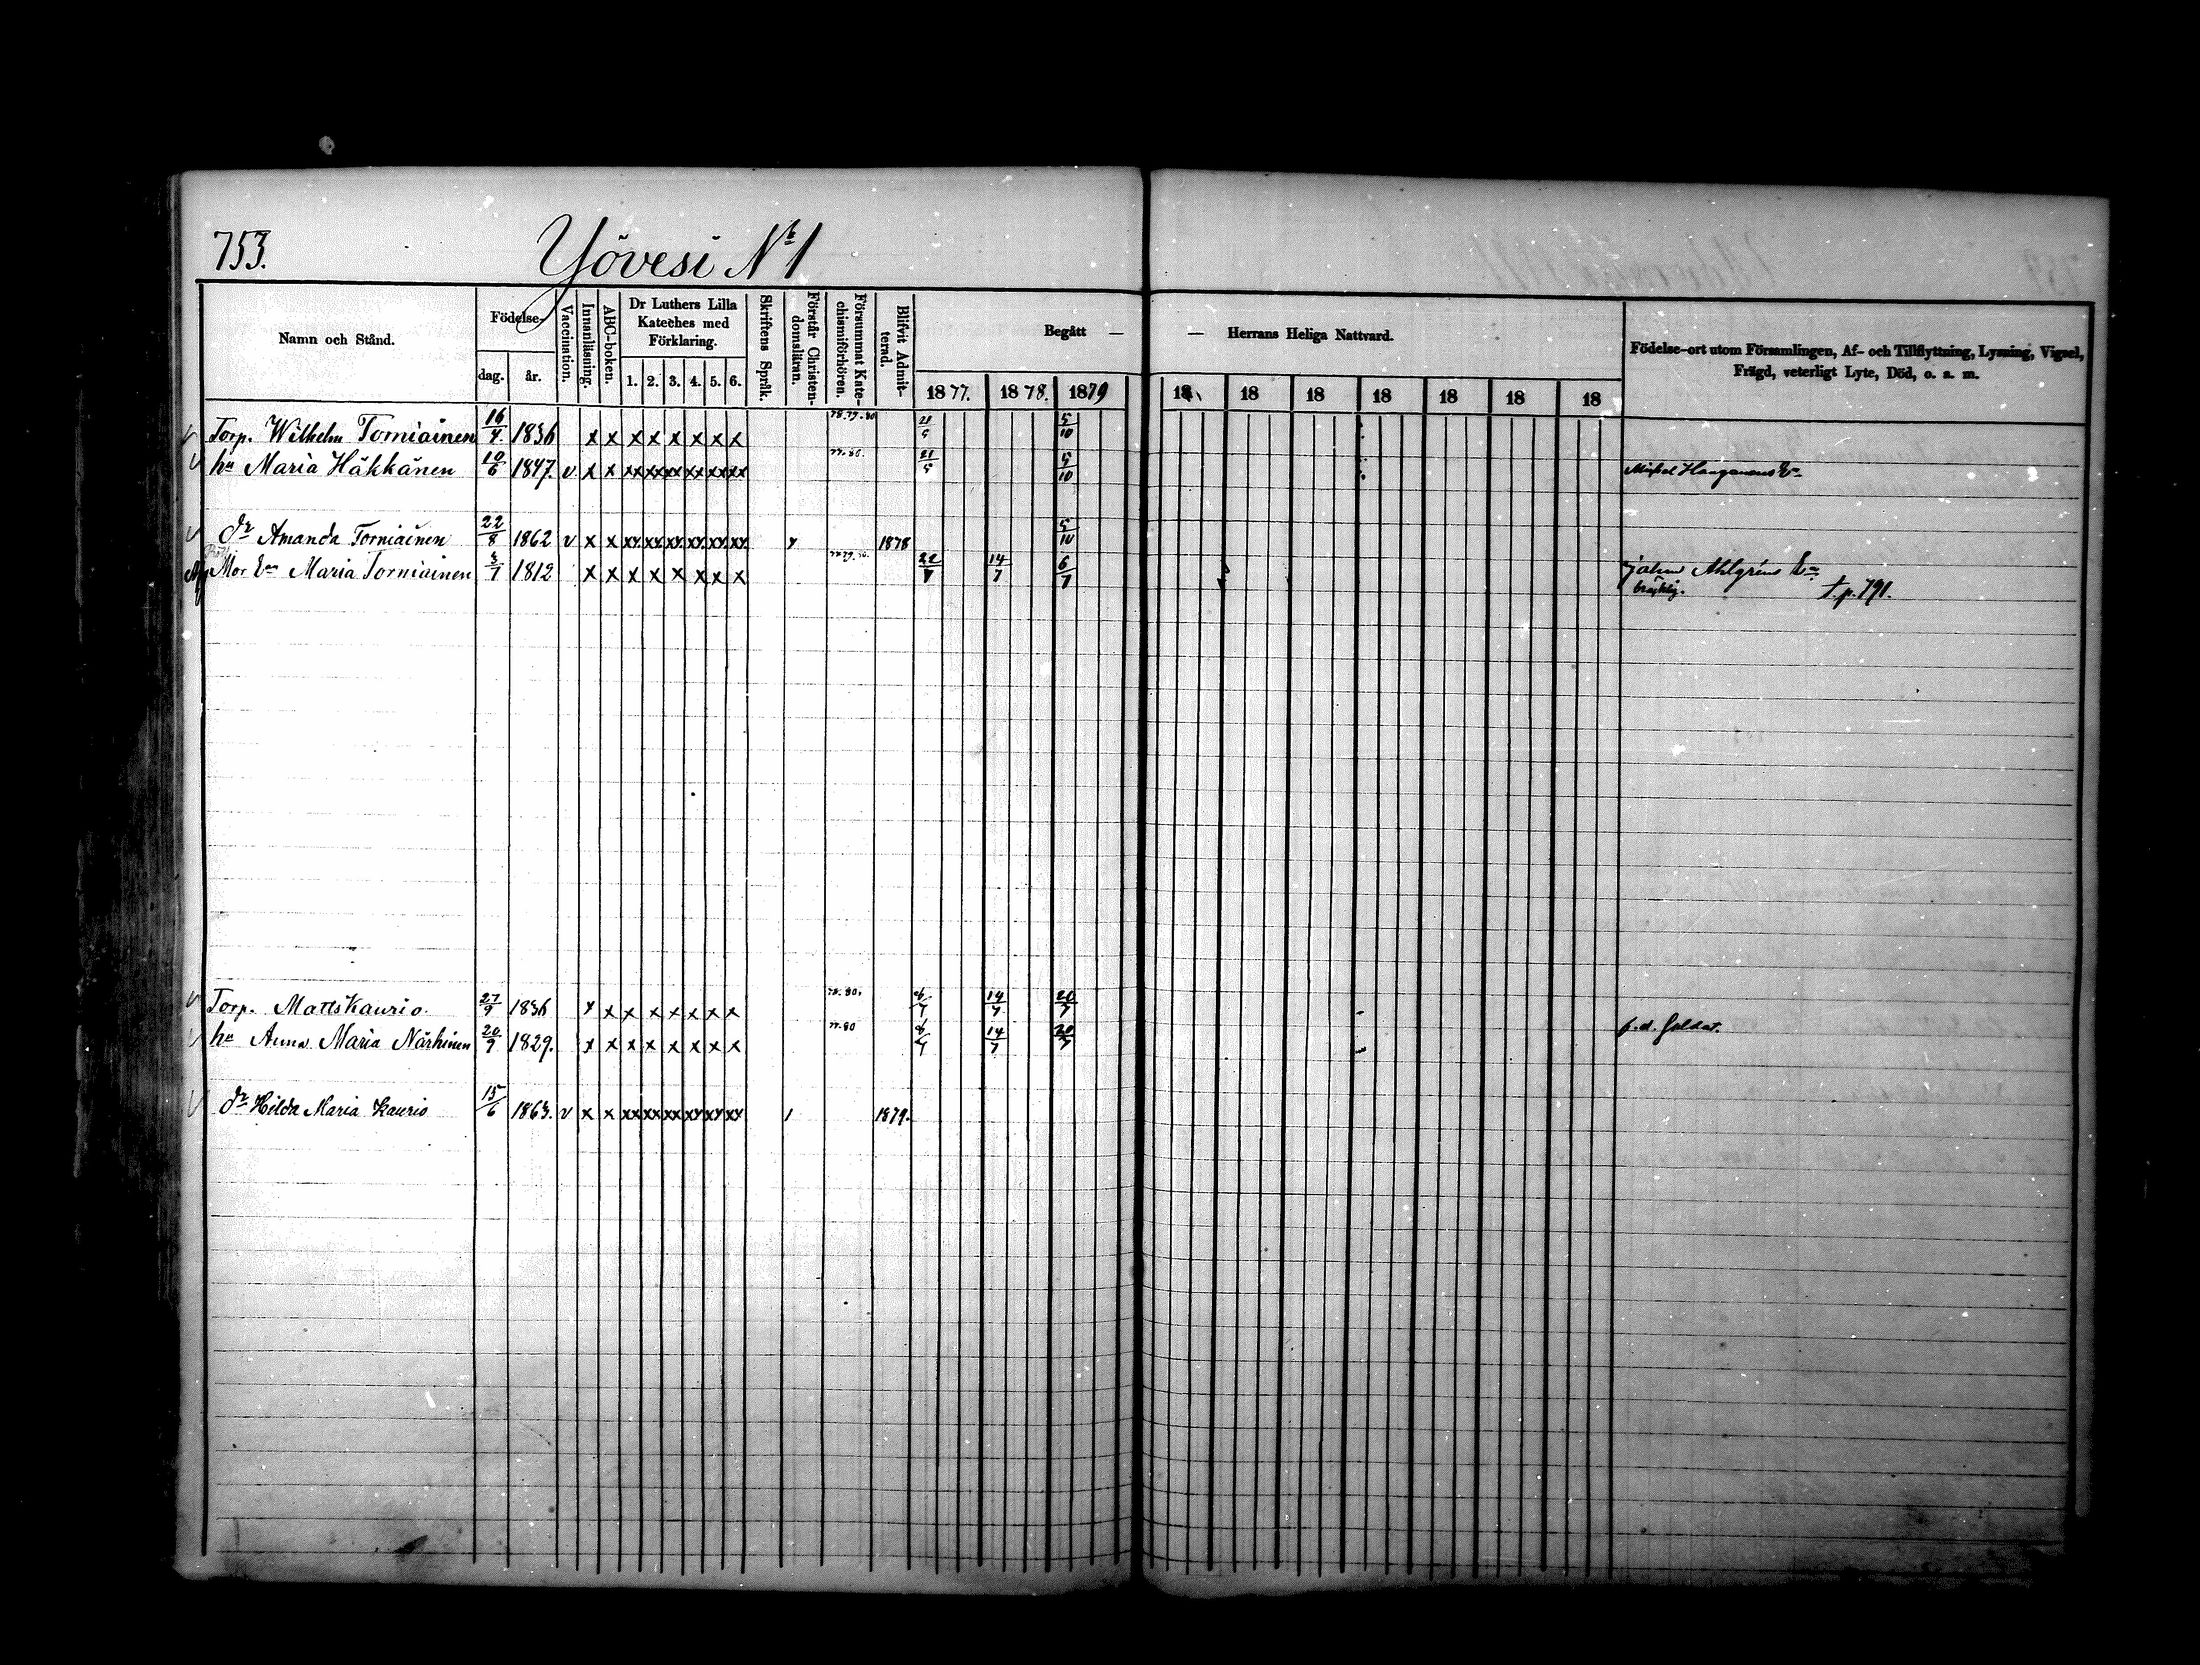 753.
Yövesi No 1
Namn och Stånd.
Födelse-
dag.
år.
Vaccination.
Innanläsning.
ABC-boken.
Dr Luthers Lilla
Kateches med
Förklaring.
1. 2. 3. 4. 5. 6.
Skriftens Språk.
Förstår Christen-
domsläran.
Försummat Kate-
chismiförhören.
Blifvit Admit-
terad.
Begått — — Herrans Heliga Nattvard.
1877. 1878. 1879 18 18 18 18 18 18 18
Födelse-ort utom Församlingen, Af- och Tillflyttning, Lysning, Vigsel,
Frägd, veterligt Lyte, Död, o. s. m.
Torp. Wilhelm Torniainen 16/4 1836 x x x x x x x x 21/5 5/10
hu Maria Häkkänen 10/6 1847. v x x xx xx xx xx xx xx 21/5 5/10
dr Amanda Torniainen 22/8 1862 v x x xx xx xx xx xx xx 1878 5/10
Mor Maria Torniainen 3/7 1812 x x x x x x x x 14/7 6/7 Ahlgréns
t. p. 791.
Torp. Matts Kaurio. 27/9 1836 x x x x x x x x 14/7 20/7
hu Anna Maria Närhinen 20/9 1829. x x x x x x x x 14/7 20/7 f. d. Soldat.
dr Hilda Maria Kaurio 15/6 1863. v x x xx xx xx xx xx xx 1879.